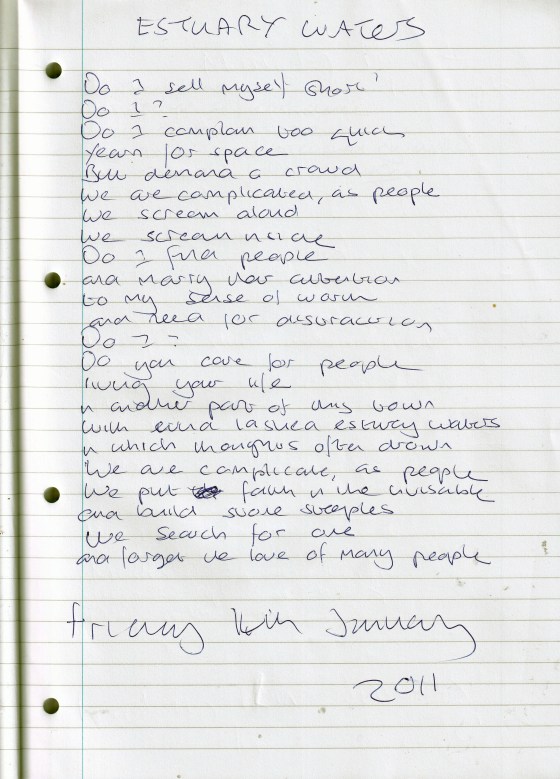 ESTUARY WATERS
Do I sell myself short?
Do I?
Do I complain too quick
yearn for space
But demand a crowd
We are complicated, as people
We scream aloud
We scream inside
Do I find people
and marry their attention
to my sense of worth
and need for distraction
Do I?
Do you care for people
living your life
in another part of this town
with wind lashed estuary waters
in which thoughts often drown
We are complicate, as people
We put faith in the invisable
and build stone steeples
We search for one
and forget the love of many people
Friday 14th January
2011